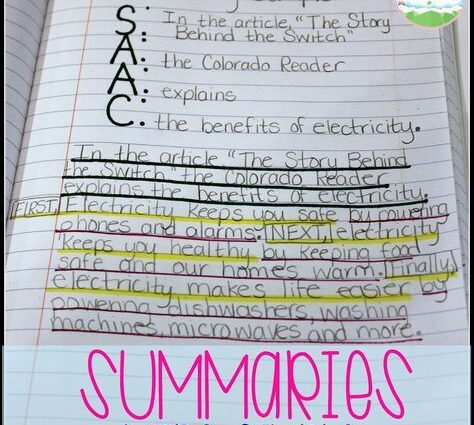 S: In the article, "The Story
Behind the Switch"
A: the Colorado Reader
A: explains
C: the benefits of electricity.
In the article "The Story Behind
the Switch" the Colorado Reader
explains the benefits of electricity.
FIRST, Electricity keeps you safe by powering
phones and alarms. NEXT, electricity
keeps you healthy by keeping food
safe and our homes warm. Finally,
electricity makes life easier by
powering dishwashers, washing
machines, microwaves and more.
SUMMARIES